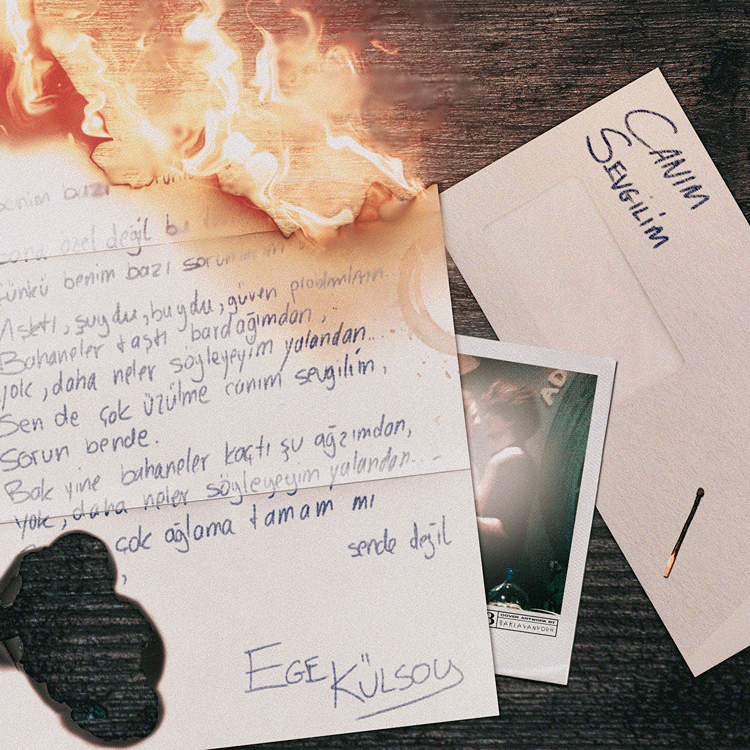 benim bazı
özel değil bu
benim bazı
Aşktı, şuydu, buydu, güven
Bahaneler taştı bardağımdan,
yok, daha neler söyleyeyim yalandan...
Sen de çok üzülme canım sevgilim,
sorun bende.
Bak yine bahaneler kaçtı şu ağzımdan,
yok, daha neler söyleyeyim yalandan...
çok ağlama tamam mı
sende değil
EGE KÜLSOY
CANIM
SEVGİLİM
AD
COVER ARTWORK BY